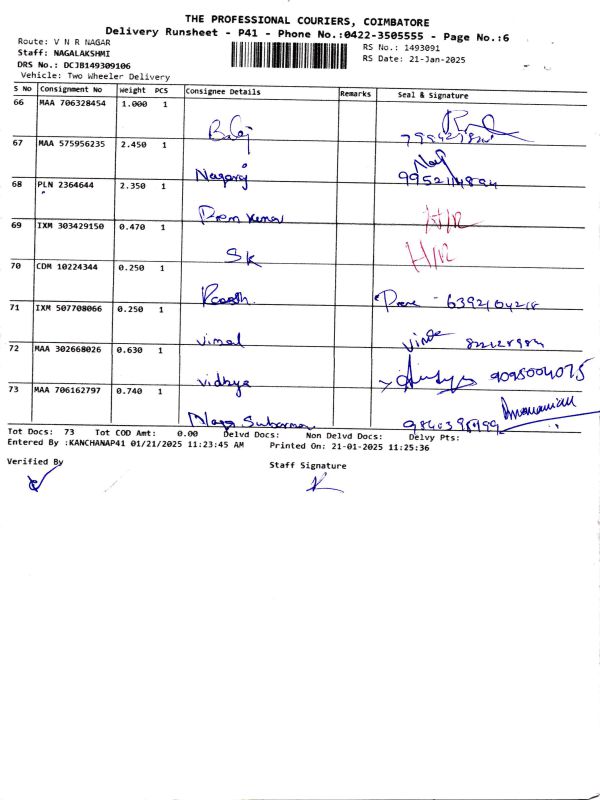 THE PROFESSIONAL COURIERS, COIMBATORE
Delivery Runsheet - P41 - Phone No.:0422-3505555 - Page No.:6
Route: V N R NAGAR
Staff: NAGALAKSHMI
DRS No.: DCJB149309106
Vehicle: Two Wheeler Delivery
RS No.: 1493091
RS Date: 21-Jan-2025
S No Consignment No Weight PCS Consignee Details Remarks Seal & Signature
66 MAA 706328454 1.000 1
Balaj
67 MAA 575956235 2.450 1
Nagaraj
68 PLN 2364644 2.350 1
Prem Kumar
69 IXM 303429150 0.470 1
SK H/R
70 CDM 10224344 0.250 1
6392104218
71 IXM 507708066 0.250 1
Vimal
72 MAA 302668026 0.630 1
Vidhya 9095004075
73 MAA 706162797 0.740 1
Tot Docs: 73 Tot COD Amt: 0.00 Delvd Docs: Non Delvd Docs: Delvy Pts:
Entered By :KANCHANAP41 01/21/2025 11:23:45 AM Printed On: 21-01-2025 11:25:36
Verified By
Staff Signature